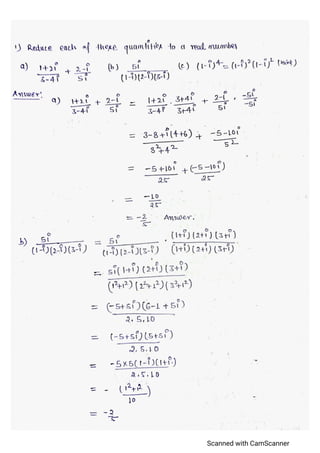 1) Reduce each of these quantities to a real number
a) (1+2i)/(3-4i) + (2-i)/(5i) (b) 5i/((1-i)(2-i)(3-i)) (c) (1-i)^4 = (1-i)^2 (1-i)^2 (Hint)
Answer: a) (1+2i)/(3-4i) + (2-i)/(5i) = (1+2i)/(3-4i) · (3+4i)/(3+4i) + (2-i)/(5i) · (-5i)/(-5i)
= (3-8+i(4+6))/(3^2+4^2) + (-5-10i)/5^2
= (-5+10i)/25 + (-5-10i)/25
= -10/25
= -2/5 Answer.
b) 5i/((1-i)(2-i)(3-i)) = 5i/((1-i)(2-i)(3-i)) · (1+i)(2+i)(3+i)/((1+i)(2+i)(3+i))
= 5i(1+i)(2+i)(3+i)/((1^2+1^2)(2^2+1^2)(3^2+1^2))
= (-5+5i)(6-1+5i)/(2.5.10)
= (-5+5i)(5+5i)/(2.5.10)
= -5×5(1-i)(1+i)/(2.5.10)
= -(1^2+1^2)/10
= -2/5
Scanned with CamScanner